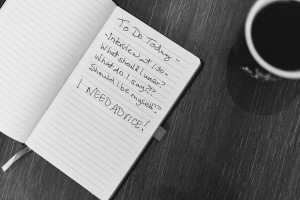 To Do Today -
- Interview at 1:30 -
What should I wear?
What do I say?!?
Should I be myself?
I NEED ADVICE!